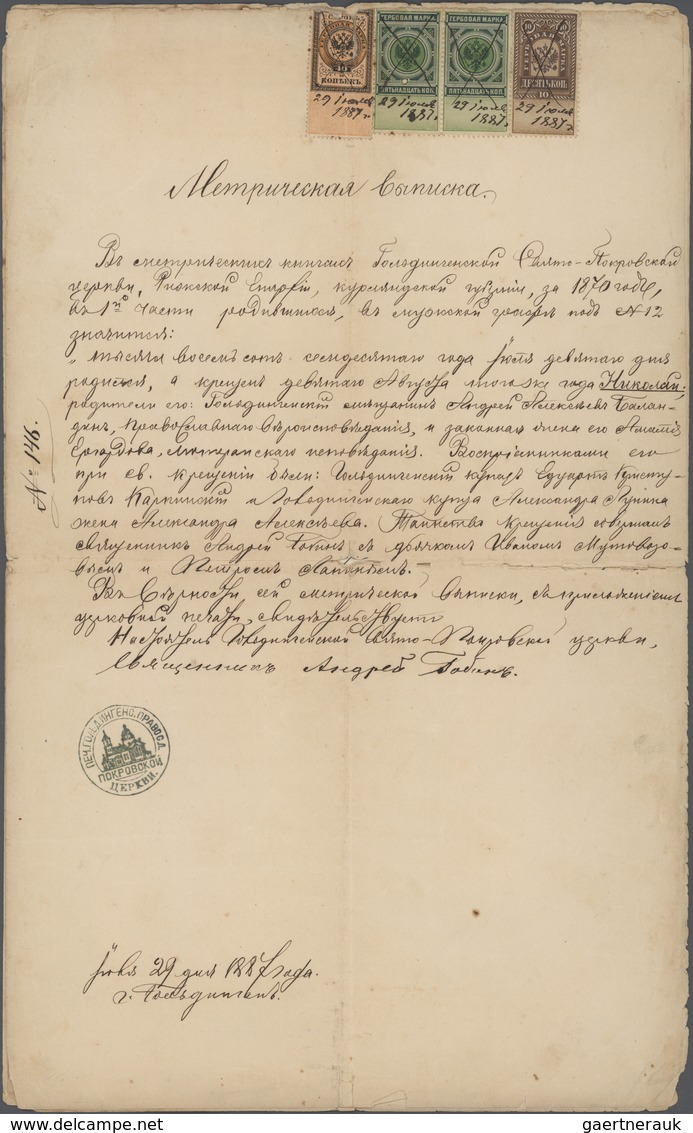 ГЕРБОВАЯ МАРКА ГЕРБОВАЯ МАРКА
КОПѢЕКЪ. ПЯТЬНАДЦАТЬ КОП. ПЯТЬНАДЦАТЬ КОП. ДЕСЯТЬ КОП.
10
29 Іюля 1887 г. 29 Іюля 1887. 29 Іюля 1887. 29 Іюля 1887 г.
Метрическая выписка.
Въ метрическихъ книгахъ Гольдингенской Свято-Покровской
церкви, Рижской Епархіи, курляндской губерніи, за 1870 годъ,
въ 1ой части родившихся, въ мужской графѣ подъ №12
значится:
„тысяча восемьсотъ семдесятаго года Іюля девятаго дня
родился, а крещенъ девятаго Августа того же года Николай;
родители его: Гольдингенскій мѣщанинъ Андрей Алексѣевъ Балан-
динъ, Православнаго вѣроисповѣданія, и законная жена его
лютеранскаго исповѣданія. Воспріемниками его
при св. крещеніи были: Гольдингенскій купецъ Едуартъ
и Гольдингенскаго купца Александра
жена Александра Алексѣева. Таинство крещенія совершалъ
священникъ Андрей съ дьячкомъ Иваномъ
и Петромъ
Въ вѣрности сей метрической выписки, съ приложеніемъ
церковной печати, свидѣтельствуетъ
Настоятель Гольдингенской Свято-Покровской церкви,
Священникъ Андрей
№ 146.
ПЕЧ. ГОЛЬДИНГЕНС. ПРАВОСЛ.
ПОКРОВСКОЙ
ЦЕРКВИ.
Іюля 29 дня 1887 года.
г. Гольдингенъ.
delcampe.net
gaertnerauk